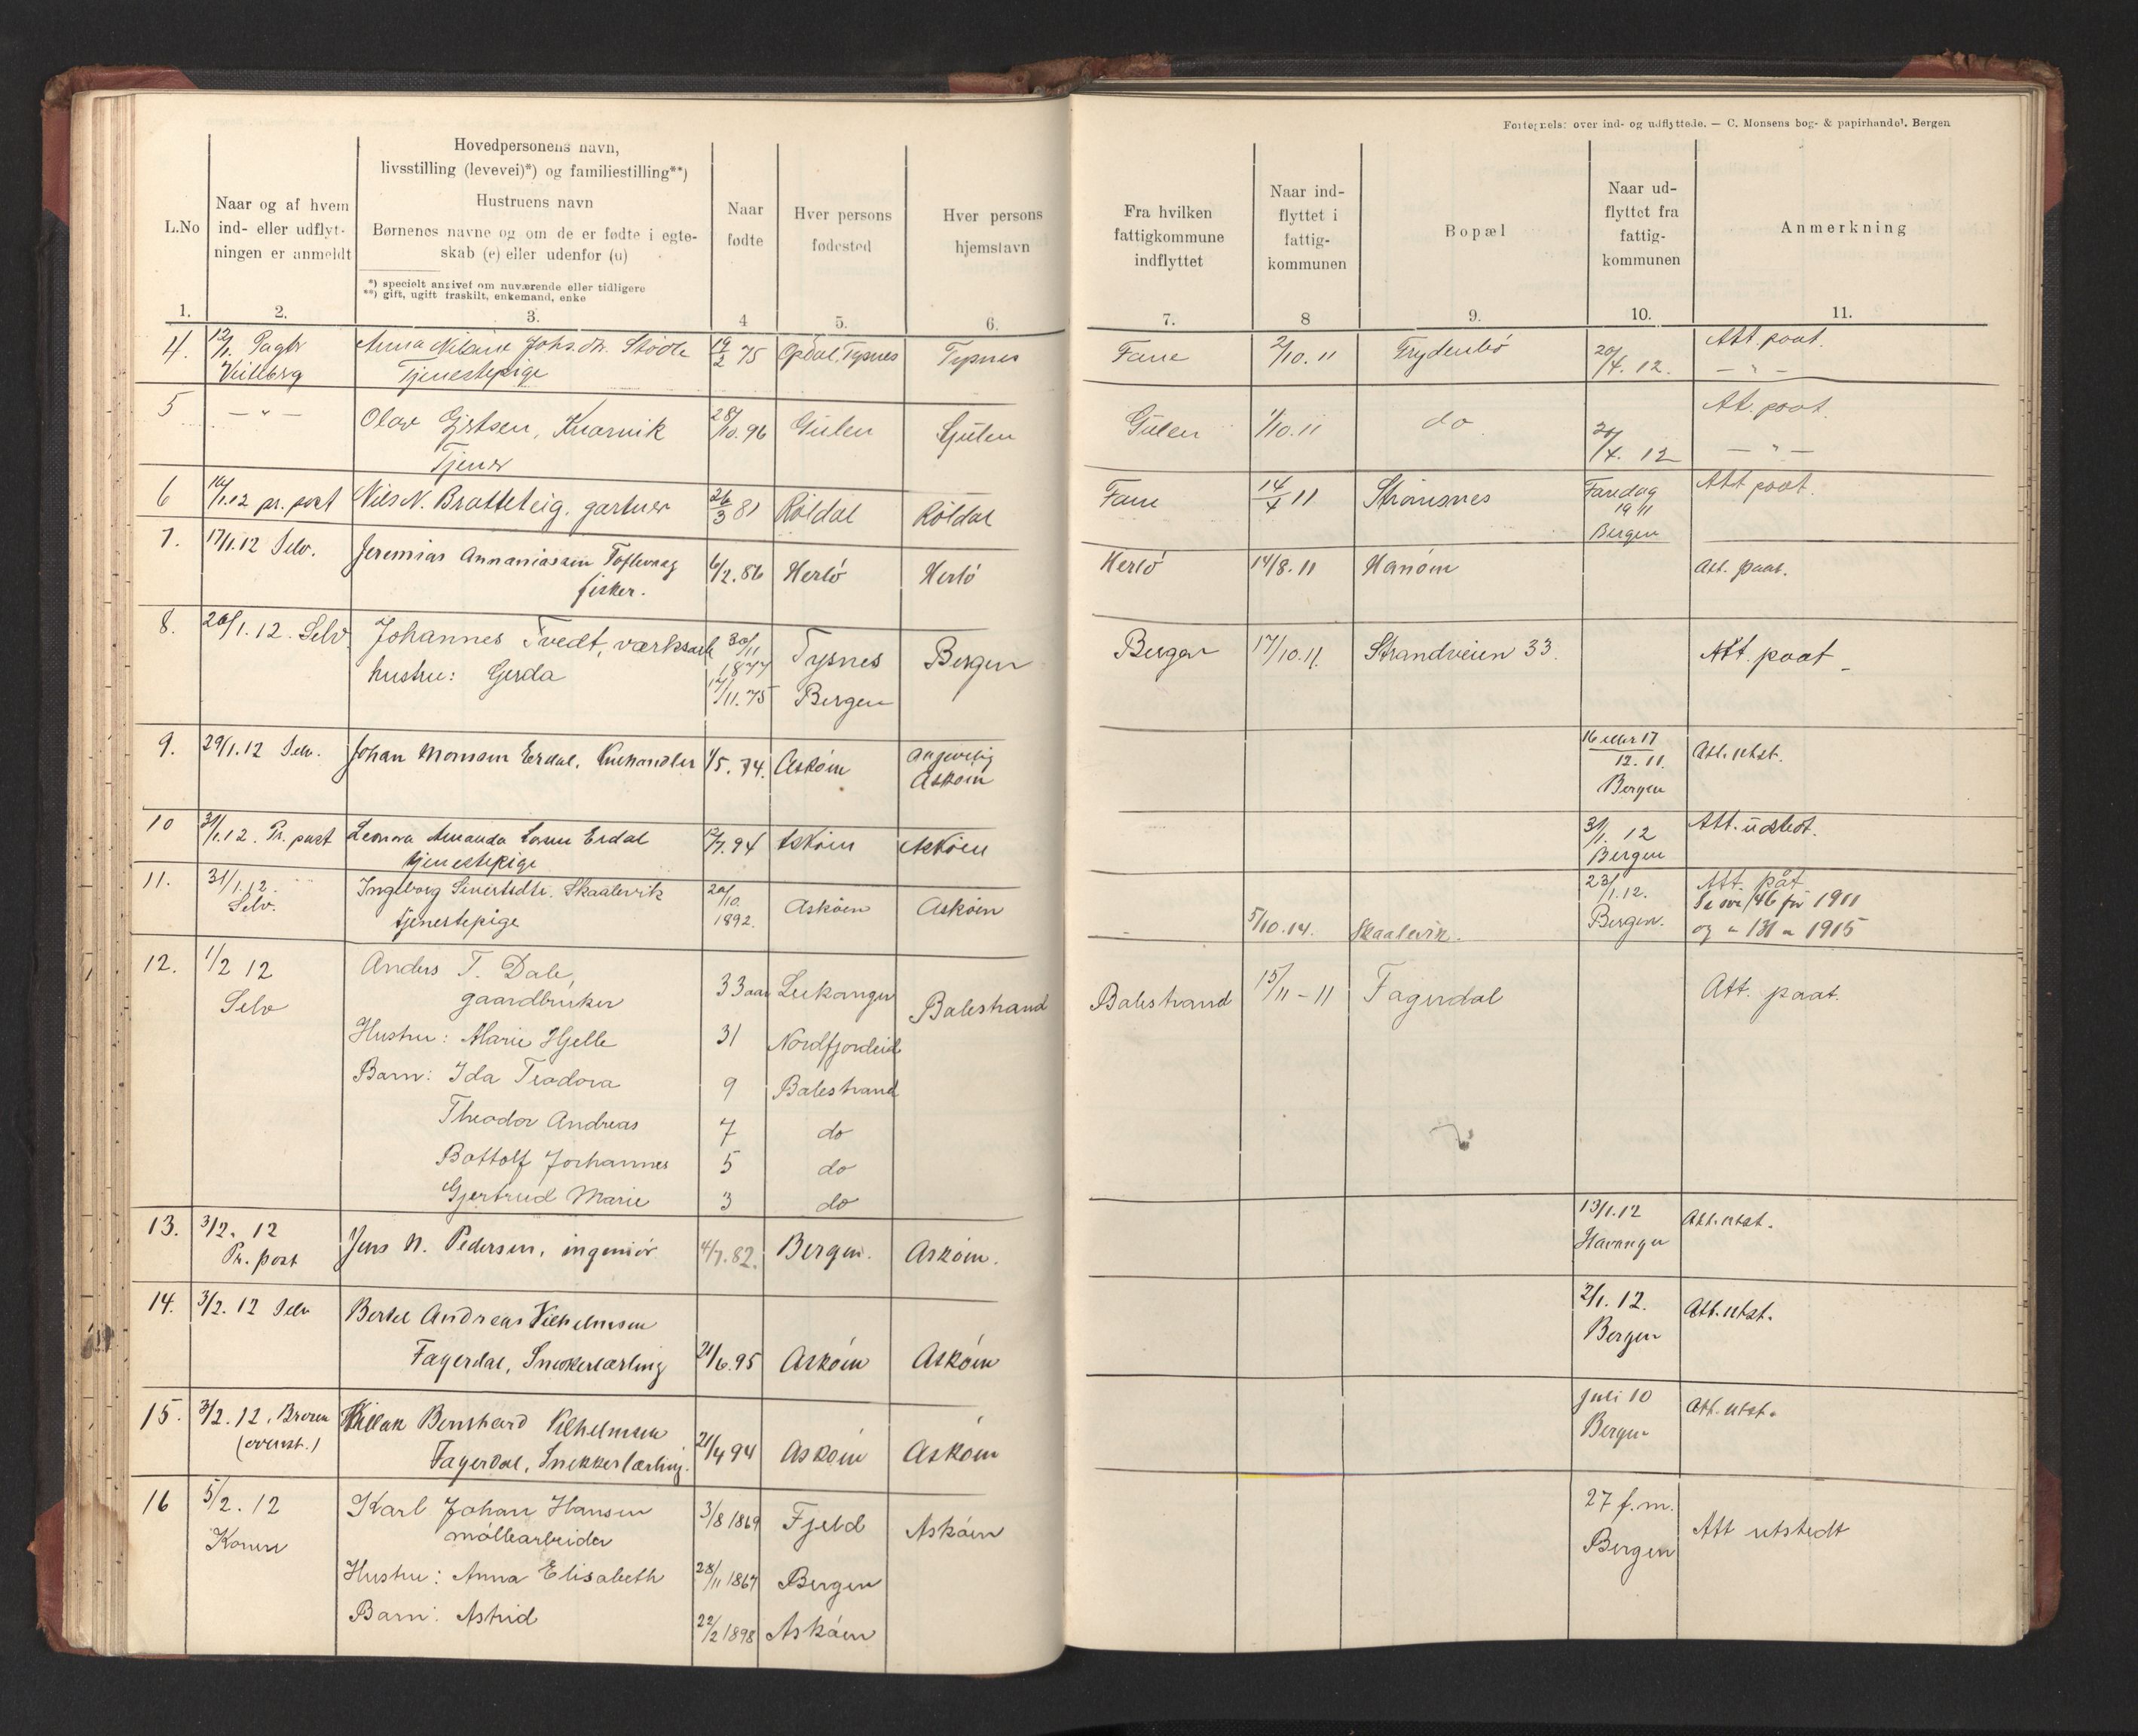 Fortegnelse over ind- og udflyttede. — C. Monsens bog- & papirhandel. Bergen
L.No
Naar og af hvem
ind- eller udflyt-
ningen er anmeldt
Hovedpersonens navn,
livsstilling (levevei)*) og familiestilling**)
Hustruens navn
Børnenes navne og om de er fødte i egte-
skab (e) eller udenfor (u)
*) specielt angivet om nuværende eller tidligere
**) gift, ugift fraskilt, enkemand, enke
Naar
fødte
Hver persons
fødested
Hver persons
hjemstavn
Fra hvilken
fattigkommune
indflyttet
Naar ind-
flyttet i
fattig-
kommunen
Bopæl
Naar ud-
flyttet fra
fattig-
kommunen
Anmerkning
1. 2. 3. 4 5. 6. 7. 8 9. 10. 11.
4. Anna Johs.dtr. Stödle 19/2 75 Opdal, Tysnes Tysnes Fane 2/10. 11 Frydenbö 20/4. 12. Att. paat.
Tjenestepige — " —
5 — " — Olav Knarvik 28/10. 96 Gulen Gulen Gulen 1/10. 11 do 20/4. 12 At. paat.
Tjener — " —
6 1.12 pr. post Nils N. Bratteteig, gartner 26/3 81 Röldal Röldal Fane 14/4 11 Strömsnes Faredag Att paat.
1911
Bergen
7. 17/1.12 Selv. Jeremias Annaniassen 6/2. 86 Herlö Herlö Herlö 14/8. 11 Hanöen Att. paat.
fisker.
8. 20/1. 12. Selv Johannes Tvedt, værksarb 30/11 1877 Tysnes Bergen Bergen 17/10. 11. Strandveien 33. Att. paat
hustru: Gerda 17/11. 75 Bergen
9. 29/1.12 Selv. Johan Monssen Erdal, 1/5. 74. Asköen Angivelig Asköen 16 eller 17 Att. utst.
12. 11.
Bergen
10 31/1.12. Pr. post Leonora Amanda Erdal 12/7. 94 Asköen Asköen 31/1. 12 Att. udstedt.
tjenestepige Bergen
11. 31/1.12. Ingeborg Sivertsdtr. Skaalevik 20/10. Asköen Asköen 23/1.12. Att. påt
Selv. tjenestepige 1892. 5/10. 14. Skaalevik. Bergen. Se 146 for 1911
og " 131 " 1915
12. 1/2 12 Anders T. Dale, 33 aar Leikanger Balestrand Balestrand 15/11 - 11 Fagerdal Att. paat.
Selv gaardbruker
Hustru: Marie Hjelle 31 Nordfjordeid
Barn: Ida Teodora 9 Balestrand
Theodor Andreas 7 do
Bottolf Johannes 5 do
Gjertrud Marie 3 do
13. 3/2. 12 Jens N. Pedersen, ingeniör 4/7. 82. Bergen. Asköen. 13/1.12 Att. utst.
Pr. post Stavanger
14. 3/2. 12 Selv Bertel Andreas Vilhelmsen 2/1. 12. Att. utst.
Fagerdal, Snekkerlærling 21/6. 95 Asköen Asköen Bergen
15. 3/2. 12. Broren Bernhard Vilhelmsen juli 10 Att. utst.
(ovenst.) Fagerdal, Snekkerlærling. 21/4 94 Asköen Asköen Bergen
16 5/2. 12 Karl Johan Hansen 3/8 1869 Fjeld Asköen 27 f. m. Att utstedt
Konen möllearbeider Bergen
Hustru: Anna Elisabeth 28/11 1867 Bergen
Barn: Astrid 22/2 1898 Asköen